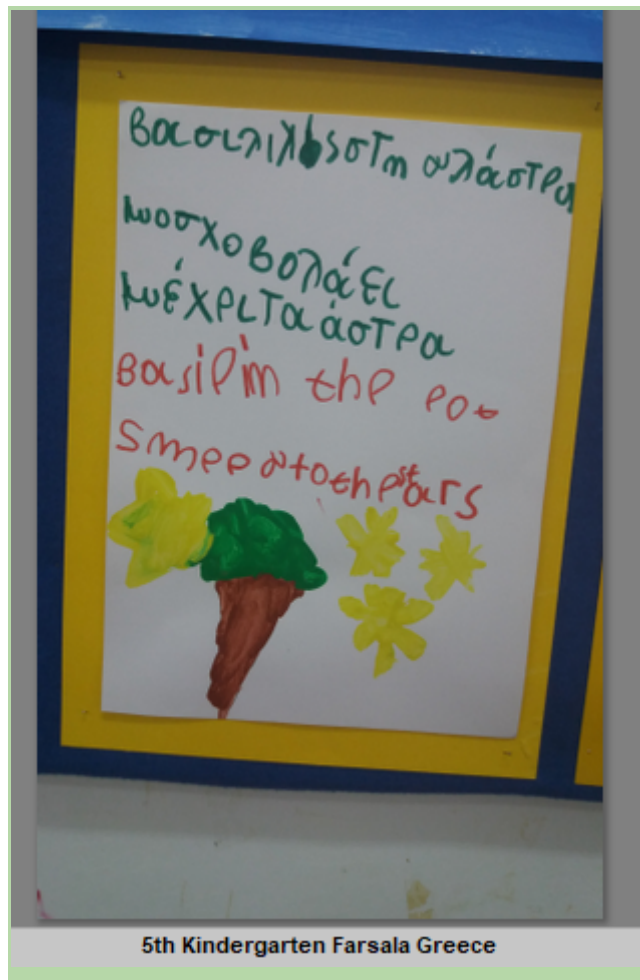 βασιλικόςστη γλάστρα
μοσχοβολάει
μέχριταάστρα
Basil in the pot
smeel to the stars
5th Kindergarten Farsala Greece